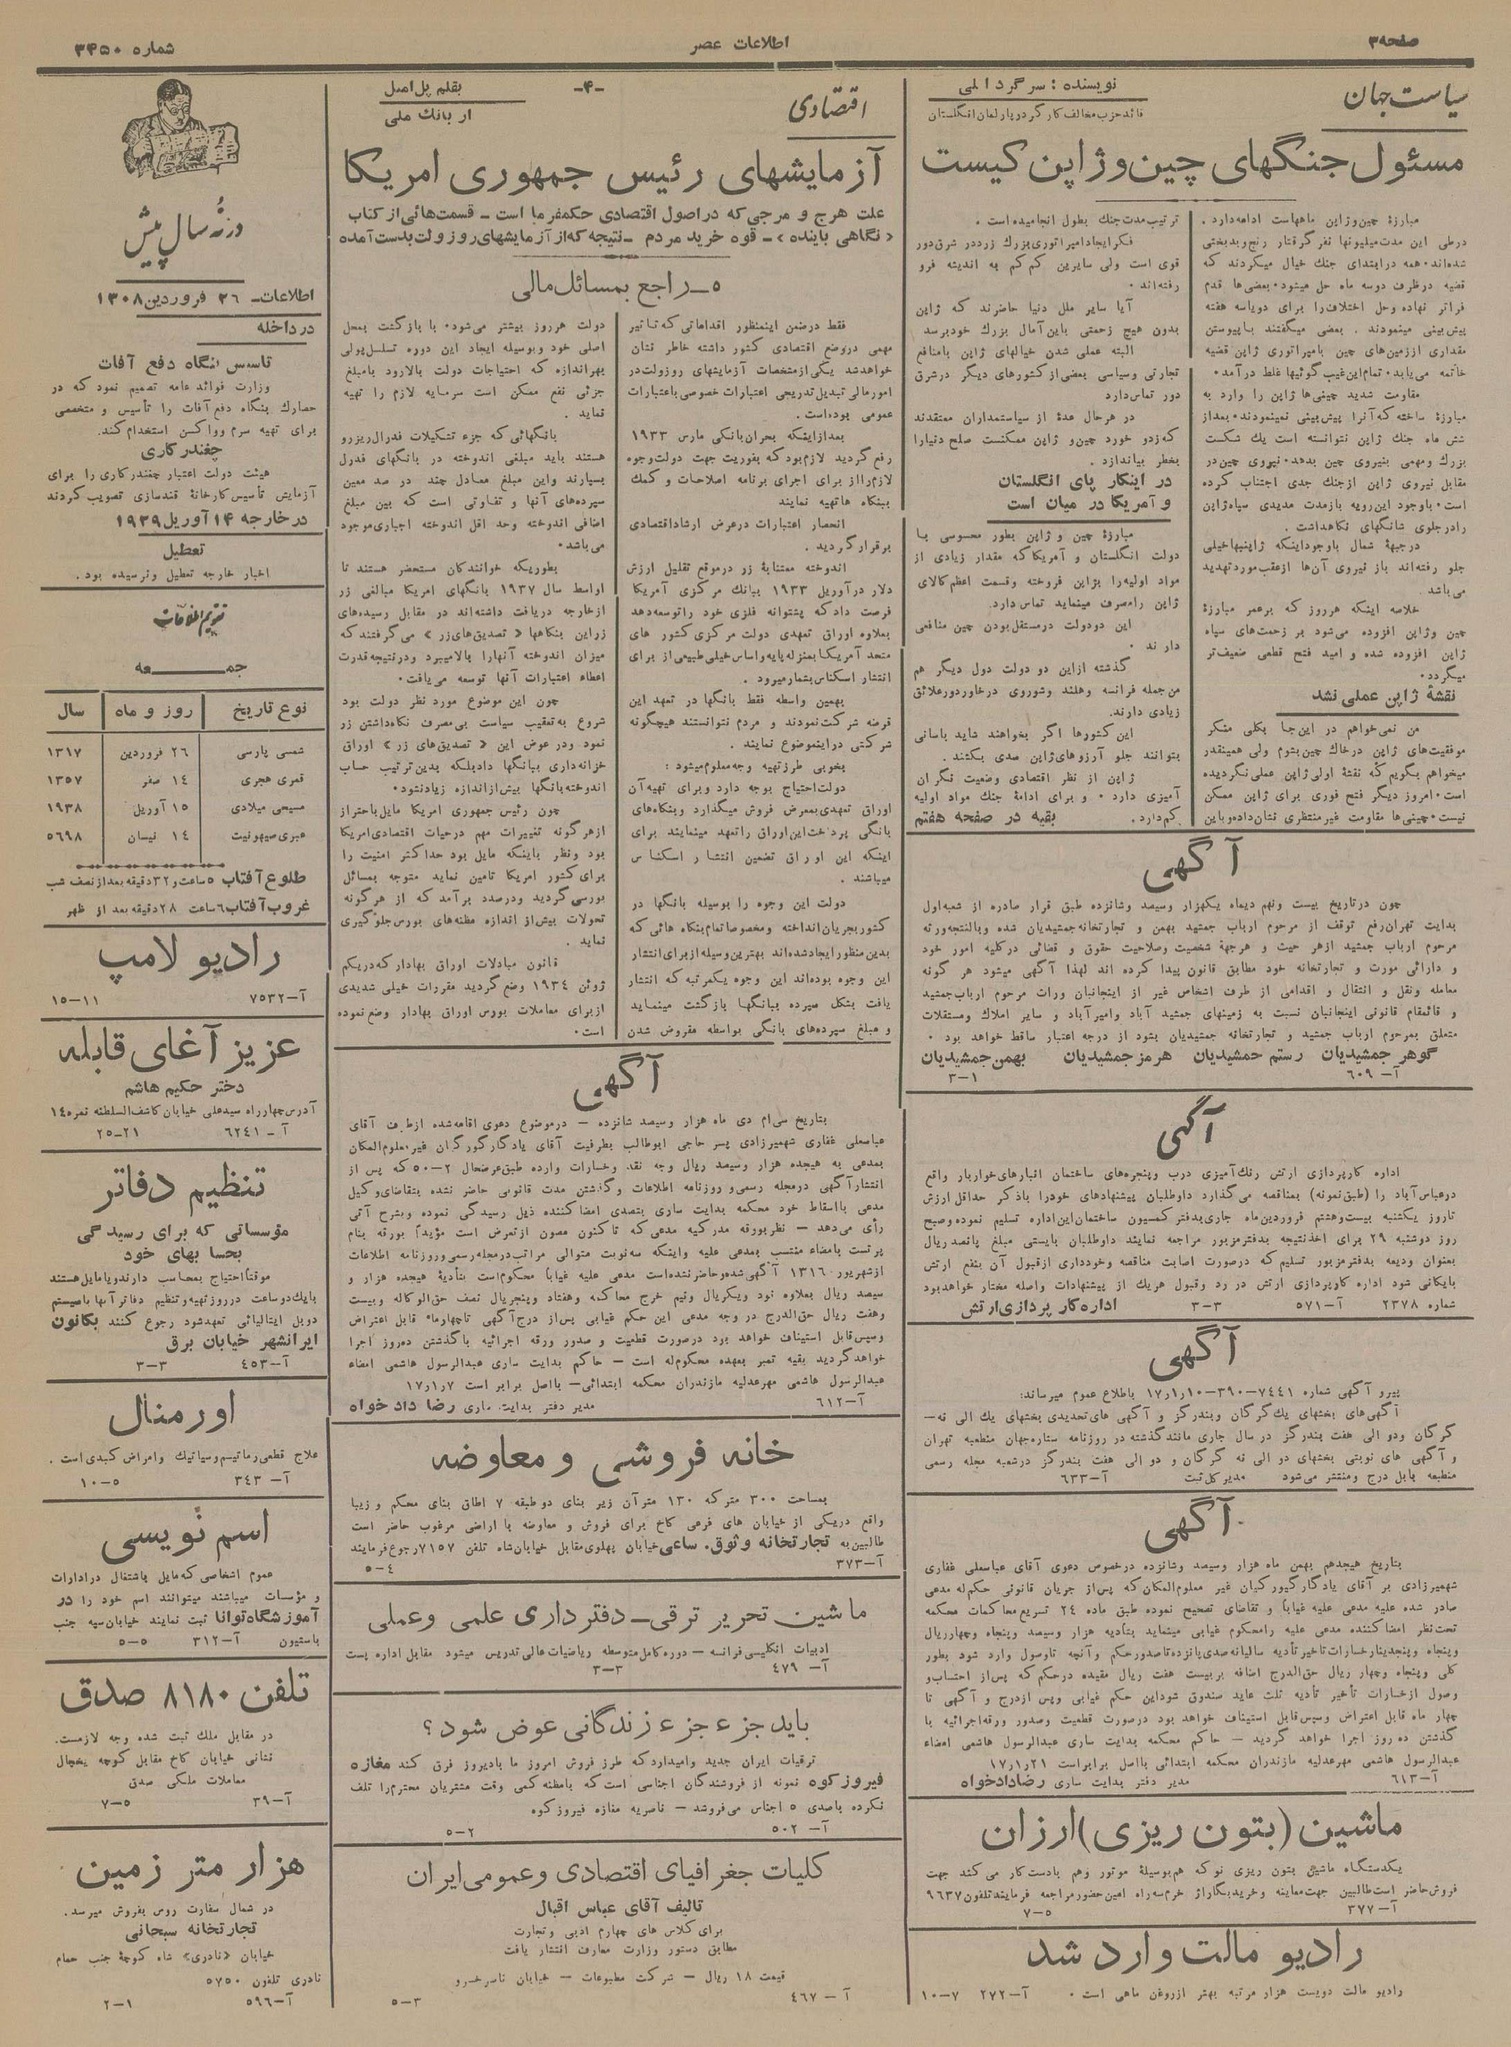 صفحه ۳
اطلاعات عصر
شماره ۳۴۵۰
سیاست جهان
نویسنده : سرگرد اتلی
قائد حزب مخالف کارگر در پارلمان انگلستان
مسئول جنگهای چین و ژاپن کیست
مبارزهٔ چین و ژاپن ماههاست ادامه دارد .
درطی این مدت میلیونها نفر گرفتار رنج و بدبختی
شده‌اند . همه در ابتدای جنگ خیال میکردند که
قضیه در ظرف دوسه ماه حل میشود . بعضی‌ها قدم
فراتر نهاده وحل اختلاف را برای دویاسه هفته
پیش بینی مینمودند . بعضی میگفتند با پیوستن
مقداری از زمین‌های چین بامپراتوری ژاپن قضیه
خاتمه می‌یابد . تمام این غیب گوئیها غلط درآمد .
مقاومت شدید چینی‌ها ژاپن را وارد به
مبارزهٔ ساخته که آنرا پیش بینی نمینمودند . بعداز
شش ماه جنگ ژاپن نتوانسته است یك شکست
بزرگ ومهمی بنیروی چین بدهد . نیروی چین در
مقابل نیروی ژاپن ازجنك جدی اجتناب کرده
است . باوجود این رویه بازمدت مدیدی سپاه ژاپن
رادر جلوی شانگهای نگاهداشت .
درجبههٔ شمال باوجود اینکه ژاپنیها خیلی
جلو رفته‌اند باز نیروی آن‌ها ازعقب مورد تهدید
می‌باشد .
خلاصه اینکه هرروز که برعمر مبارزهٔ
چین وژاپن افزوده می‌شود بر زحمت‌های سپاه
ژاپن افزوده شده و امید فتح قطعی ضعیف‌تر
میگردد .
نقشهٔ ژاپن عملی نشد
من نمی‌خواهم در این‌جا بکلی منکر
موفقیت‌های ژاپن درخاك چین بشوم ولی همینقدر
میخواهم بگویم که نقشهٔ اولی ژاپن عملی نگردیده
است . امروز دیگر فتح فوری برای ژاپن ممکن
نیست . چینی‌ها مقاومت غیر منتظری نشان داده و باین
ترتیب مدت جنك بطول انجامیده است .
فکر ایجاد امپراتوری بزرك زرد در شرق دور
قوی است ولی سایرین کم کم به اندیشه فرو
رفته‌اند .
آیا سایر ملل دنیا حاضرند که ژاپن
بدون هیچ زحمتی باین آمال بزرك خود برسد
البته عملی شدن خیالهای ژاپن بامنافع
تجارتی وسیاسی بعضی از کشورهای دیگر درشرق
دور تماس دارد
در هرحال عدهٔ از سیاستمداران معتقدند
که زدو خورد چین و ژاپن ممکنست صلح دنیارا
بخطر بیاندازد .
در اینکار پای انگلستان
و آمریکا در میان است
مبارزهٔ چین و ژاپن بطور محسوسی با
دولت انگلستان و آمریکا که مقدار زیادی از
مواد اولیه را بژاپن فروخته وقسمت اعظم کالای
ژاپن رامصرف مینماید تماس دارد.
این دودولت درمستقل بودن چین منافعی
دارند .
گذشته ازاین دو دولت دول دیگر هم
من جمله فرانسه و هلند وشوروی درخاور دور علائق
زیادی دارند.
این کشورها اگر بخواهند شاید بآسانی
بتوانند جلو آرزوهای ژاپن سدی بکشند .
ژاپن از نظر اقتصادی وضعیت نگران
آمیزی دارد . و برای ادامهٔ جنك مواد اولیه
کم دارد . بقیه در صفحه هفتم
آگهی
چون درتاریخ بیست ونهم دیماه یکهزار وسیصد وشانزده طبق قرار صادره از شعبه اول
بدایت تهران رفع توقف از مرحوم ارباب جمشید بهمن و تجارتخانه جمشیدیان شده وبالنتجه ورثه
مرحوم ارباب جمشید ازهر حیث و هرجههٔ شخصیت وصلاحیت حقوق و قضائی درکلیه امور خود
و دارائی مورث و تجارتخانه خود مطابق قانون پیدا کرده اند لهذا آگهی میشود هر گونه
معامله ونقل و انتقال و اقدامی از طرف اشخاص غیر از اینجانبان وراث مرحوم ارباب جمشید
و قائمقام قانونی اینجانبان نسبت به زمینهای جمشید آباد وامیرآباد و سایر املاك ومستقلات
متعلق بمرحوم ارباب جمشید و تجارتخانه جمشیدیان بشود از درجه اعتبار ساقط خواهد بود .
گوهر جمشیدیان رستم جمشیدیان هرمز جمشیدیان بهمن جمشیدیان
آ– ۶۰۹ ۱–۳
آگهی
اداره کارپردازی ارتش رنك آمیزی درب وپنجره‌های ساختمان انبارهای خواربار واقع
در عباس آباد را (طبق نمونه) بمناقصه می گذارد داوطلبان پیشنهادهای خودرا باذکر حداقل ارزش
تاروز یکشنبه بیست وهشتم فروردین ماه جاری بدفتر کمسیون ساختمان این اداره تسلیم نموده وصبح
روز دوشنبه ۲۹ برای اخذ نتیجه بدفتر مزبور مراجعه نمایند داوطلبان بایستی مبلغ پانصد ریال
بعنوان ودیعه بدفتر مزبور تسلیم که درصورت اصابت مناقصه وخودداری ازقبول آن بنفع ارتش
بایگانی شود اداره کارپردازی ارتش در رد وقبول هریك از پیشنهادات واصله مختار خواهد بود
شماره ۲۳۷۸ آ–۵۷۱ ۳–۳ اداره کارپردازی ارتش
آگهی
پیرو آگهی شماره ۷۴۴۱–۳۹۰–۱۷٫۱٫۱۰ باطلاع عموم میرساند:
آگهی‌های بخشهای یك گرگان وبندرگز و آگهی های تحدیدی بخشهای یك الی نه–
گرگان ودو الی هفت بندرگز در سال جاری مانند گذشته در روزنامه ستاره جهان منطبعه تهران
و آگهی های نوبتی بخشهای دو الی نه گرگان و دو الی هفت بندرگز درشعبه مجله رسمی
منطبعه بابل درج ومنتشر می‌شود مدیر کل ثبت آ–۶۳۳
آگهی
بتاریخ هیجدهم بهمن ماه هزار وسیصد وشانزده درخصوص دعوی آقای عباسعلی غفاری
شهمیرزادی بر آقای یادگار گیورکیان غیر معلوم المکان که پس از جریان قانونی حکم له مدعی
صادر شده علیه مدعی علیه غیاباً و تقاضای تصحیح نموده طبق ماده ۲۴ تسریع محاکمات محکمه
تحت نظر امضا کننده مدعی علیه رامحکوم غیابی مینماید بتأدیه هزار وسیصد وپنجاه وچهار ریال
وپنجاه وپنجدینار خسارات تاخیر تأدیه سالیانه صدی پانزده تا صدور حکم و آنچه تاوصول وارد شود بطور
کلی وپنجاه وچهار ریال حق الدرج اضافه بر بیست هفت ریال مقیده درحکم که پس از احتساب و
وصول ازخسارات تأخیر تأدیه ثلث عاید صندوق شود این حکم غیابی وپس ازدرج و آگهی تا
چهار ماه قابل اعتراض وسپس قابل استیناف خواهد بود درصورت قطعیت وصدور ورقه اجرائیه با
گذشتن ده روز اجرا خواهد گردید – حاکم محکمه بدایت ساری عبدالرسول هاشمی امضاء
عبدالرسول هاشمی مهر عدلیه مازندران محکمه ابتدائی بااصل برابر است ۱۷٫۱٫۲۱
آ–۶۱۳ مدیر دفتر بدایت ساری رضا دادخواه
ماشین (بتون ریزی) ارزان
یکدستگاه ماشین بتون ریزی نو که هم بوسیلهٔ موتور وهم بادست کار می کند جهت
فروش حاضر است طالبین جهت معاینه وخرید بگاراژ خرم سه راه امین حضور مراجعه فرمایند تلفون ۹۶۳۷
آ–۳۷۷ ۵–۷
رادیو مالت وارد شد
رادیو مالت دویست هزار مرتبه بهتر ازروغن ماهی است . آ–۲۷۲ ۷–۱۰
اقتصادی
–۴–
بقلم پل امیل
از بانك ملی
آزمایشهای رئیس جمهوری امریکا
علت هرج و مرجی که در اصول اقتصادی حکمفرما است – قسمت هائی از کتاب
«نگاهی باینده» – قوه خرید مردم – نتیجه که از آزمایشهای روزولت بدست آمده
۵– راجع بمسائل مالی
فقط درضمن اینمنظور اقداماتی که تاثیر
مهمی دروضع اقتصادی کشور داشته خاطر نشان
خواهد شد یکی از مشخصات آزمایشهای روزولت در
امور مالی تبدیل تدریجی اعتبارات خصوصی باعتبارات
عمومی بوده است.
بعد از اینکه بحران بانکی مارس ۱۹۳۳
رفع گردید لازم بود که بفوریت جهت دولت وجوه
لازم را از برای اجرای برنامه اصلاحات و کمك
ببنگاه ها تهیه نمایند
انحصار اعتبارات درعرض ارشاد اقتصادی
برقرار گردید .
اندوخته معتنابهٔ زر درموقع تقلیل ارزش
دلار در آوریل ۱۹۳۳ ببانك مرکزی آمریکا
فرصت داد که پشتوانه فلزی خود را توسعه دهد
بعلاوه اوراق تعهدی دولت مرکزی کشور های
متحد آمریکا بمنزله پایه واساس خیلی طبیعی از برای
انتشار اسکناس بشمار میرود .
بهمین واسطه فقط بانگها در تعهد این
قرضه شرکت نمودند و مردم نتوانستند هیچگونه
شرکتی دراینموضوع نمایند .
بخوبی طرز تهیه وجه معلوم میشود :
دولت احتیاج بوجه دارد وبرای تهیه آن
اوراق تعهدی بمعرض فروش میگذارد وبنگاه‌های
بانگی پرداخت این اوراق راتعهد مینمایند برای
اینکه این اوراق تضمین انتشار اسکناس
میباشند .
دولت این وجوه را بوسیله بانگها در
کشور بجریان انداخته ومخصوصا تمام بنگاه هائی که
بدین منظور ایجاد شده‌اند بهترین وسیله از برای انتشار
این وجوه بوده‌اند این وجوه یکمرتبه که انتشار
یافت بشکل سپرده ببانگها بازگشت مینماید
و مبلغ سپرده‌های بانگی بواسطه مقروض شدن
دولت هرروز بیشتر می‌شود . با بازگشت بمحل
اصلی خود وبوسیله ایجاد این دوره تسلسل پولی
بهر اندازه که احتیاجات دولت بالارود بامبلغ
جزئی نفع ممکن است سرمایه لازم را تهیه
نماید .
بانگهائی که جزء تشکیلات فدرال ریزرو
هستند باید مبلغی اندوخته در بانگهای فدرل
بسپارند واین مبلغ معادل چند در صد معین
سپرده‌های آنها و تفاوتی است که بین مبلغ
اضافی اندوخته وحد اقل اندوخته اجباری موجود
می‌باشد .
بطوریکه خوانندگان مستحضر هستند تا
اواسط سال ۱۹۳۷ بانگهای امریکا مبالغی زر
ازخارجه دریافت داشته‌اند در مقابل رسیده‌های
زراین بنگاهها «تصدیق‌های زر» می گرفتند که
میزان اندوخته آنهارا بالا میبرد ودرنتیجه قدرت
اعطاء اعتبارات آنها توسعه می‌یافت .
چون این موضوع مورد نظر دولت بود
شروع به تعقیب سیاست بی‌مصرف نگاه داشتن زر
نمود ودرعوض این «تصدیق‌های زر» اوراق
خزانه‌داری ببانگها داد بلکه بدین ترتیب حساب
اندوخته بانگها بیش از اندازه زیاد نشود .
چون رئیس جمهوری امریکا مایل باحتراز
از هرگونه تغییرات مهم درحیات اقتصادی امریکا
بود ونظر باینکه مایل بود حداکثر امنیت را
برای کشور امریکا تامین نماید متوجه بمسائل
بورسی گردید ودرصدد برآمد که از هرگونه
تحولات بیش از اندازه مظنه‌های بورس جلوگیری
نماید .
قانون مبادلات اوراق بهادار که دریکم
ژوئن ۱۹۳۴ وضع گردید مقررات خیلی شدیدی
ازبرای معاملات بورس اوراق بهادار وضع نموده
است .
آگهی
بتاریخ سی‌ام دی ماه هزار وسیصد شانزده – درموضوع دعوی اقامه شده ازطرف آقای
عباسعلی غفاری شهمیرزادی پسر حاجی ابوطالب بطرفیت آقای یادگار گورگیان غیر معلوم المکان
بمدعی به هیجده هزار وسیصد ریال وجه نقد وخسارات وارده طبق عرضحال ۲–۵۰ که پس از
انتشار آگهی درمجله رسمی و روزنامه اطلاعات وگذشتن مدت قانونی حاضر نشده بتقاضای وکیل
مدعی بااسقاط خود محکمه بدایت ساری بتصدی امضا کننده ذیل رسیدگی نموده وبشرح آتی
رأی می‌دهد – نظر بورقه مدرکیه مدعی که تاکنون مصون از تعرض است مؤیداً بورقه بنام
پرتست بامضاء منتسب بمدعی علیه واینکه سه نوبت متوالی مراتب درمجله رسمی وروزنامه اطلاعات
ازشهریور ۱۳۱۶ آگهی شده وحاضر نشده است مدعی علیه غیاباً محکوم است بتأدیهٔ هیجده هزار و
سیصد ریال بعلاوه نود ویکریال ونیم خرج محاکمه وهفتاد وپنجریال نصف حق الوکاله وبیست
وهفت ریال حق الدرج در وجه مدعی این حکم غیابی پس از درج آگهی تا چهار ماه قابل اعتراض
وسپس قابل استیناف خواهد بود درصورت قطعیت و صدور ورقه اجرائیه باگذشتن ده روز اجرا
خواهد گردید بقیه تمبر بعهده محکوم له است – حاکم بدایت ساری عبدالرسول هاشمی امضاء
عبدالرسول هاشمی مهر عدلیه مازندران محکمه ابتدائی – بااصل برابر است ۱۷٫۱٫۷
آ–۶۱۲ مدیر دفتر بدایت ساری رضا دادخواه
خانه فروشی و معاوضه
بمساحت ۳۰۰ متر که ۱۳۰ متر آن زیر بنای دو طبقه ۷ اطاق بنای محکم و زیبا
واقع دریکی از خیابان های فرعی کاخ برای فروش و معاوضه با اراضی مرغوب حاضر است
طالبین به تجارتخانه وثوق. ساعی خیابان پهلوی مقابل خیابان شاه تلفن ۷۱۵۷ رجوع فرمایند
آ–۳۷۳ ۴–۵
ماشین تحریر ترقی – دفتر داری علمی و عملی
ادبیات انگلیسی فرانسه – دوره کامل متوسطه ریاضیات عالی تدریس میشود مقابل اداره پست
آ– ۴۷۹ ۳–۳
باید جزء جزء زندگانی عوض شود ؟
ترقیات ایران جدید وامیدارد که طرز فروش امروز ما بادیروز فرق کند مغازه
فیروزکوه نمونه از فروشندگان اجناسی است که بامظنه کمی وقت مشتریان محترم را تلف
نکرده باصدی ۵ اجناس می‌فروشد – ناصریه مغازه فیروز کوه
آ– ۵۰۲ ۲–۵
کلیات جغرافیای اقتصادی و عمومی ایران
تالیف آقای عباس اقبال
برای کلاس های چهارم ادبی و تجارت
مطابق دستور وزارت معارف انتشار یافت
قیمت ۱۸ ریال – شرکت مطبوعات – خیابان ناصرخسرو
آ – ۴۶۷ ۳–۵
در نه سال پیش
اطلاعات– ۲۶ فروردین ۱۳۰۸
در داخله
تاسیس بنگاه دفع آفات
وزارت فوائد عامه تصمیم نمود که در
حصارك بنگاه دفع آفات را تأسیس و متخصصی
برای تهیه سرم وواکسن استخدام کند.
چغندر کاری
هیئت دولت اعتبار چغندر کاری را برای
آزمایش تأسیس کارخانهٔ قندسازی تصویب کردند
در خارجه ۱۴ آوریل ۱۹۲۹
تعطیل
اخبار خارجه تعطیل ونرسیده بود .
تقویم اطلاعات
جمعه
نوع تاریخ | روز و ماه | سال
شمسی پارسی | ۲۶ فروردین | ۱۳۱۷
قمری هجری | ۱۴ صفر | ۱۳۵۷
مسیحی میلادی | ۱۵ آوریل | ۱۹۳۸
عبری صیهونیت | ۱۴ نیسان | ۵۶۹۸
طلوع آفتاب ۵ ساعت و ۳۲ دقیقه بعد از نصف شب
غروب آفتاب ۶ ساعت ۲۸ دقیقه بعد از ظهر
رادیو لامپ
آ–۷۵۳۲ ۱۱–۱۵
عزیز آغای قابله
دختر حکیم هاشم
آدرس چهارراه سیدعلی خیابان کاشف السلطنه نمره ۱۴
آ– ۶۲۴۱ ۲۱–۲۵
تنظیم دفاتر
مؤسساتی که برای رسیدگی
بحسابهای خود
موقتاً احتیاج بمحاسب دارند و یا مایل هستند
بایك دو ساعت در روز تهیه و تنظیم دفاتر آنها باسیستم
دوبل ایتالیائی تعهد شود رجوع کنند بکانون
ایرانشهر خیابان برق
آ–۴۵۳ ۳–۳
اورمنال
علاج قطعی رماتیسم وسیاتیك وامراض کبدی است .
آ– ۳۴۳ ۵–۱۰
اسم نویسی
عموم اشخاصی که مایل باشتغال درادارات
و مؤسسات میباشند میتوانند اسم خود را در
آموزشگاه توانا ثبت نمایند خیابان سپه جنب
باستیون آ–۳۱۲ ۵–۵
تلفن ۸۱۸۰ صدق
در مقابل ملك ثبت شده وجه لازمست.
نشانی خیابان کاخ مقابل کوچه یخچال
معاملات ملکی صدق
آ–۳۹ ۵–۷
هزار متر زمین
در شمال سفارت روس بفروش میرسد.
تجارتخانه سبحانی
خیابان «نادری» شاه کوچهٔ جنب حمام
نادری تلفون ۵۷۵۰
آ–۵۹۶ ۱–۲